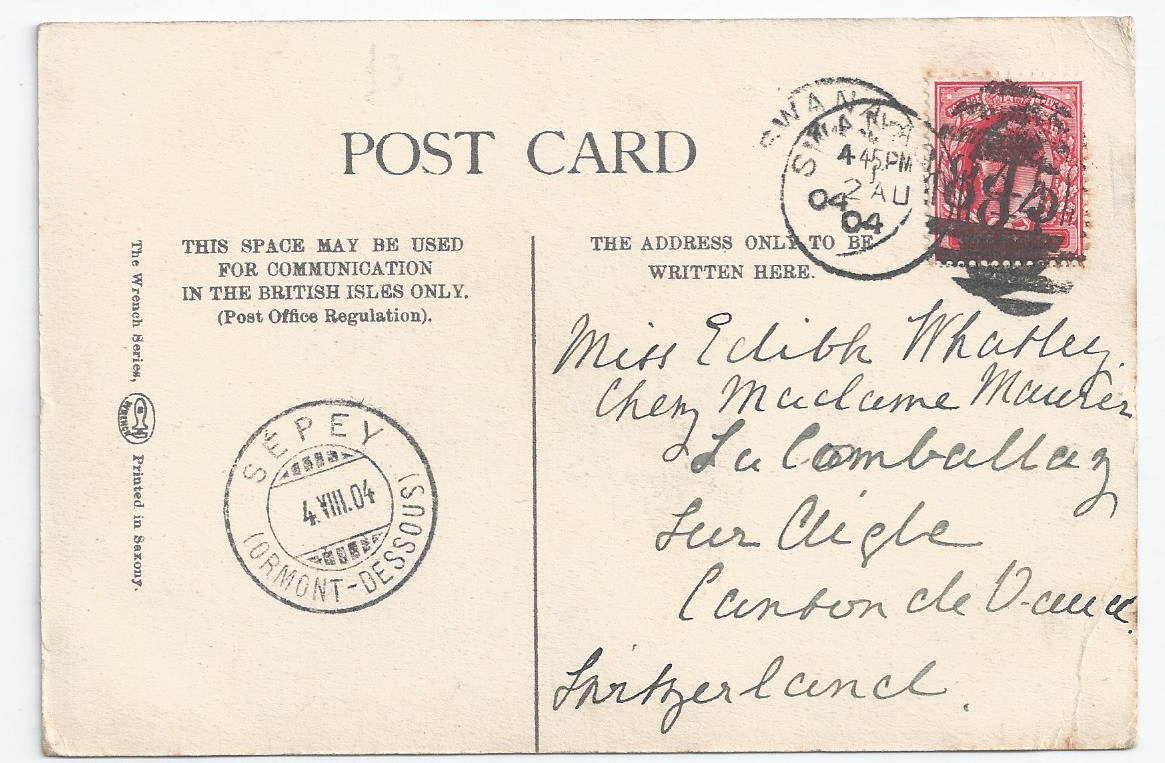 POST CARD
THIS SPACE MAY BE USED
FOR COMMUNICATION
IN THE BRITISH ISLES ONLY.
(Post Office Regulation).
THE ADDRESS ONLY TO BE
WRITTEN HERE.
The Wrench Series,
WRENCH
Printed in Saxony.
SÉPEY
4.VIII.04
(ORMONT-DESSOUS)
4 45 PM
2 AU
04
04
Miss Edith Whatley.
Chez Madame Maurer
La Comballaz
Sur Aigle
Canton de Vaud.
Switzerland.